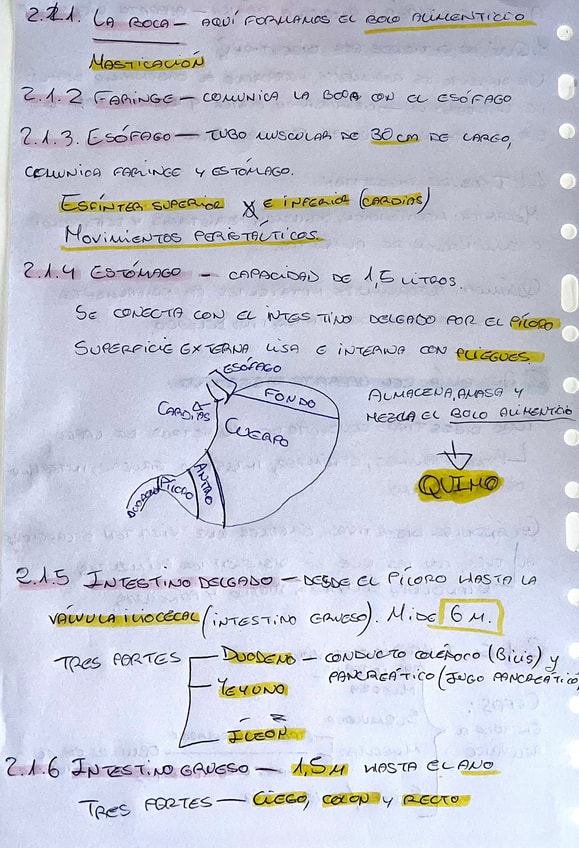 2.1.1. LA BOCA – AQUÍ FORMAMOS EL BOLO ALIMENTICIO
MASTICACIÓN
2.1.2 FARINGE – COMUNICA LA BOCA CON EL ESÓFAGO
2.1.3. ESÓFAGO – TUBO MUSCULAR DE 30 CM DE LARGO,
COMUNICA FARINGE Y ESTÓMAGO.
ESFÍNTER SUPERIOR E INFERIOR (CARDIAS)
MOVIMIENTOS PERISTÁLTICOS.
2.1.4 ESTÓMAGO – CAPACIDAD DE 1,5 LITROS.
SE CONECTA CON EL INTESTINO DELGADO POR EL PÍLORO
SUPERFICIE EXTERNA LISA E INTERNA CON PLIEGUES.
ESÓFAGO
FONDO
CARDIAS
CUERPO
ANTRO
PÍLORO
DUODENO
ALMACENA, AMASA Y
MEZCLA EL BOLO ALIMENTICIO
QUIMO
2.1.5 INTESTINO DELGADO – DESDE EL PÍLORO HASTA LA
VÁLVULA ILIOCECAL (INTESTINO GRUESO). MIDE 6 M.
TRES PARTES – DUODENO – CONDUCTO COLÉDOCO (BILIS) Y
PANCREÁTICO (JUGO PANCREÁTICO)
– YEYUNO
ÍLEON
2.1.6 INTESTINO GRUESO – 1,5 M HASTA EL ANO
TRES PARTES – CIEGO, COLON Y RECTO